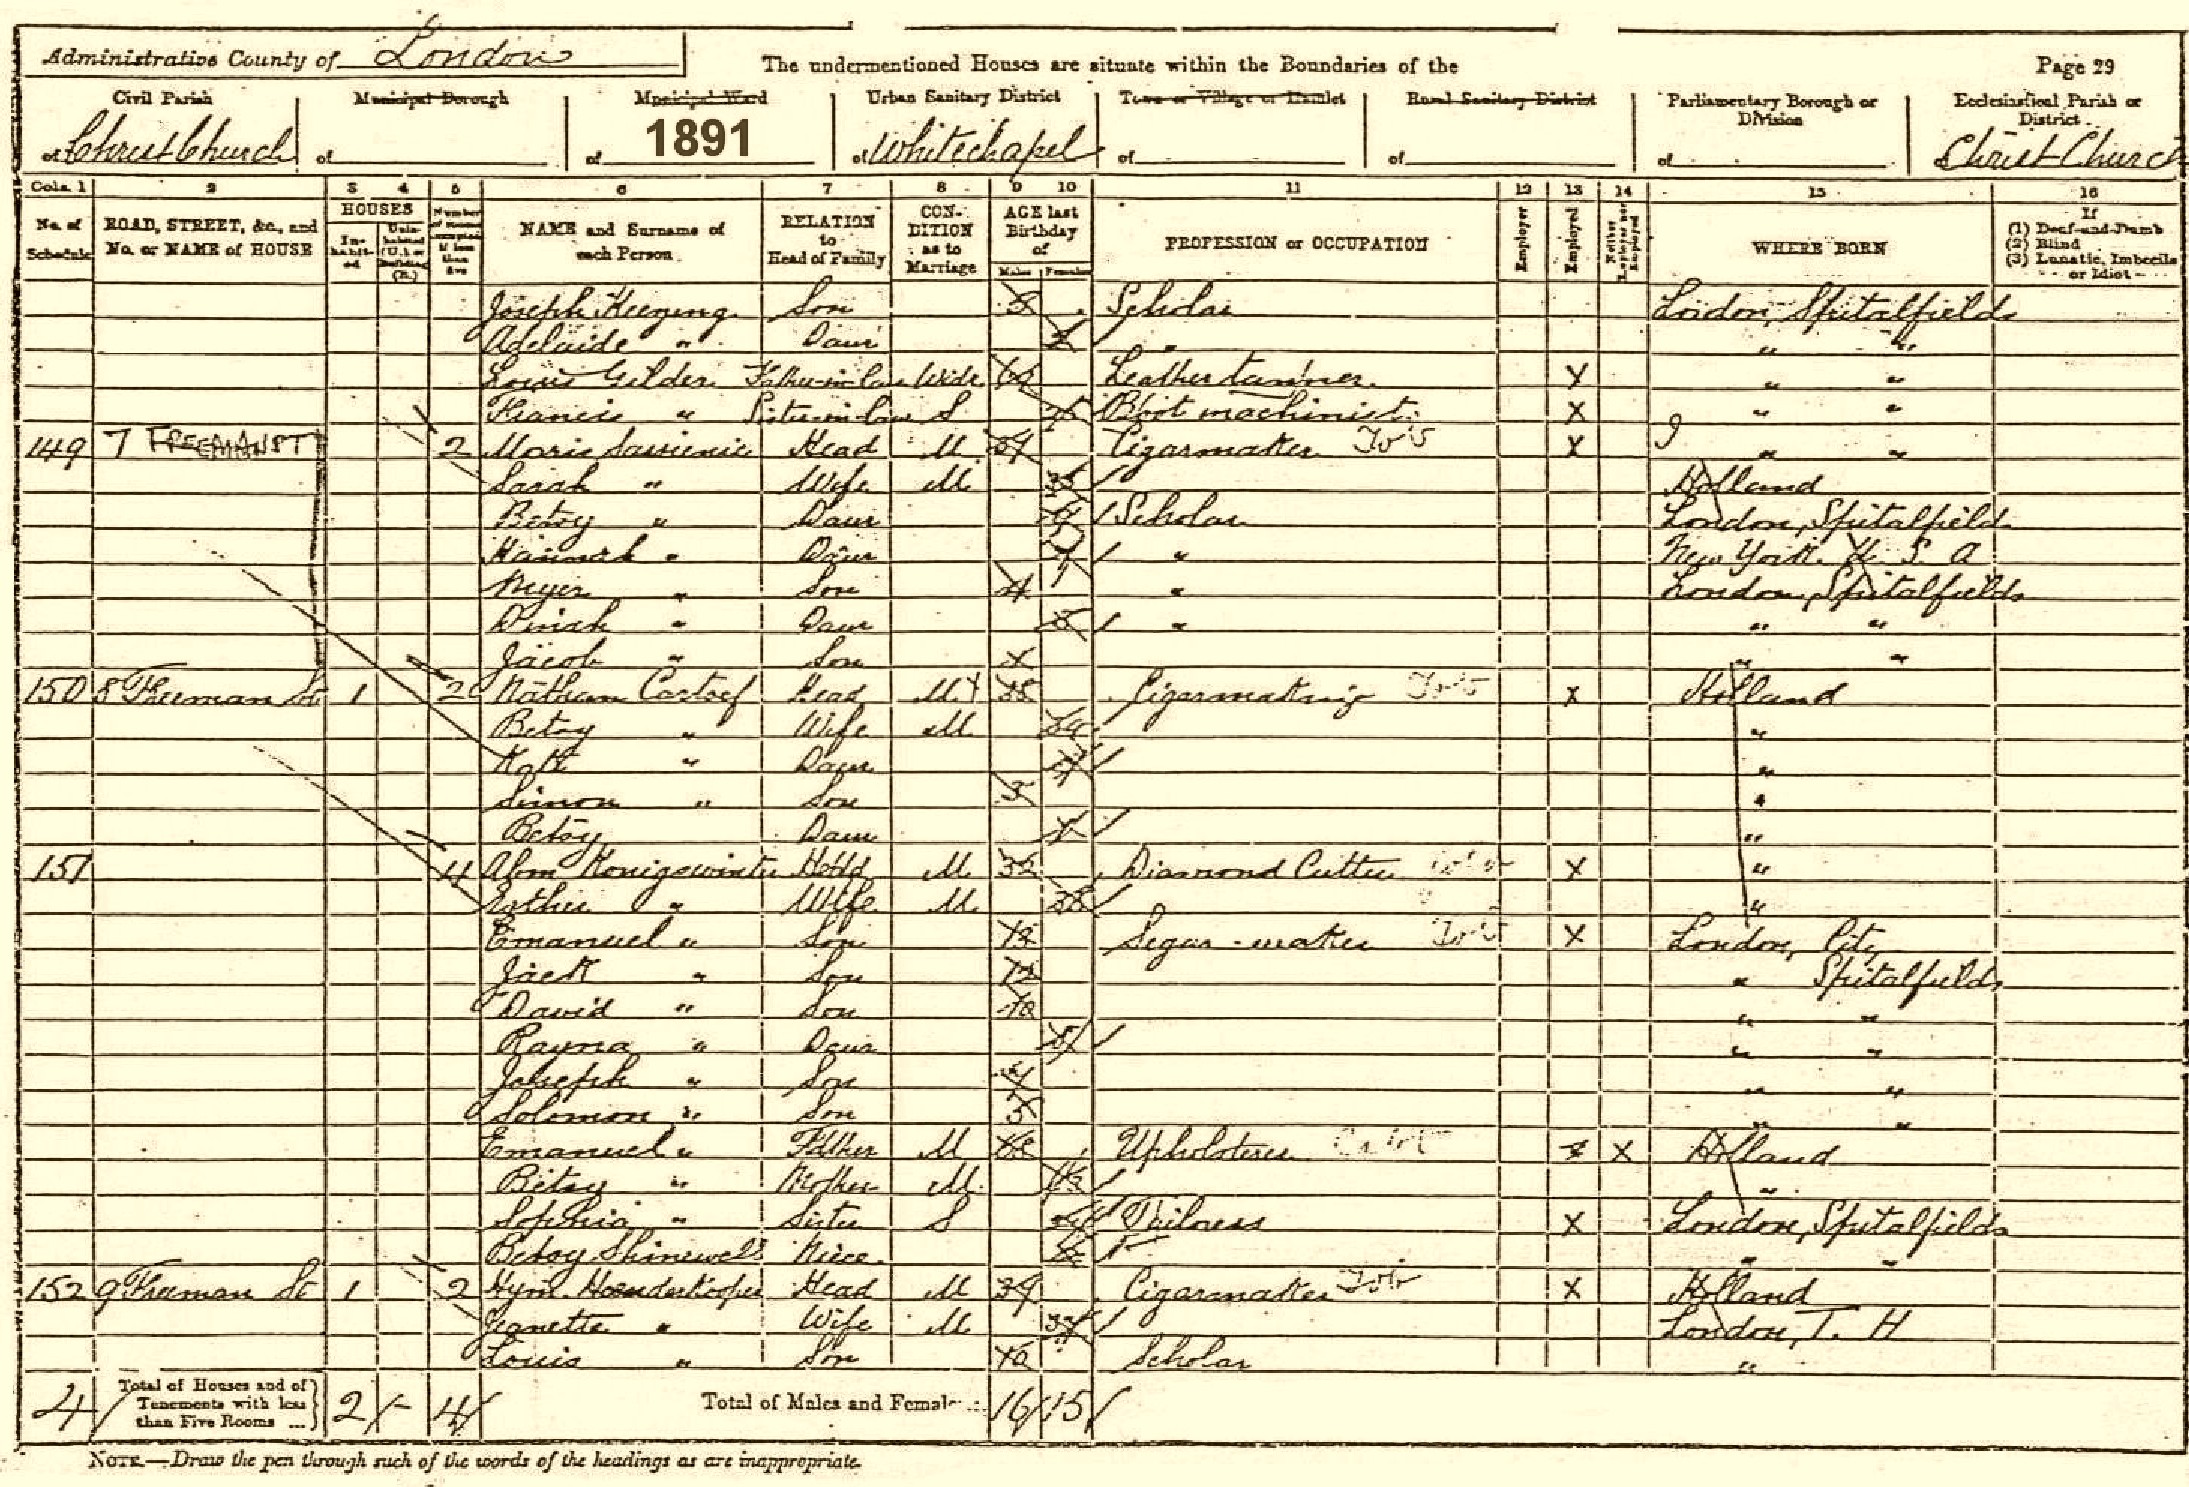 Administrative County of London
The undermentioned Houses are situate within the Boundaries of the
Page 29
Civil Parish of Christ Church
Municipal Borough of
Municipal Ward of
1891
Urban Sanitary District of Whitechapel
Town or Village or Hamlet of
Rural Sanitary District of
Parliamentary Borough or Division of
Ecclesiastical Parish or District of Christ Church
Cols. 1 2 3 4 5 6 7 8 9 10 11 12 13 14 15 16
No. of Schedule
ROAD, STREET, &c., and No. or NAME of HOUSE
HOUSES
Inhabited
Uninhabited (U.) or Building (B.)
Number of Rooms occupied if less than five
NAME and Surname of each Person
RELATION to Head of Family
CONDITION as to Marriage
AGE last Birthday of
Males Females
PROFESSION or OCCUPATION
Employer
Employed
Neither Employer nor Employed
WHERE BORN
If
(1) Deaf-and-Dumb
(2) Blind
(3) Lunatic, Imbecile or Idiot
Joseph Son Scholar London, Spitalfields
Adelaide " Daur " " "
Louis Gilder Father-in-law Widr Leather tanner X " "
Francis " Sister-in-law S Boot machinist X " "
149 7 FREEMAN ST 2 Head M Cigarmaker X " "
Sarah " Wife M Holland
Betsy " Daur Scholar London, Spitalfield
Hannah " Daur 7 " New York U. S. A
Meyer " Son 4 " London, Spitalfields
Dinah " Daur " " "
Jacob " Son " "
150 8 Freeman St 1 2 Nathan Head M 35 Cigarmaking X Holland
Betsy " Wife M "
Kate " Daur "
Simon " Son "
Betsy Daur "
151 4 Abm Konigswinter Head M 32 Diamond Cutter X "
Esther " Wife M 38 "
Emanuel " Son Segar-maker X London, City
Jack " Son 12 " Spitalfields
David " Son 10 " "
Rayna " Daur " "
Joheph " Son " "
Solomon " Son 5 " "
Emanuel " Father M Upholsterer X X Holland
Betsy " Mother M "
Sophia " Sister S Tailoress X London, Spitalfields
Betsy Shinewell Niece " "
152 9 Freeman St 1 2 Hym. Head M 39 Cigarmaker X Holland
Jeanette " Wife M London, T. H
Louis " Son 10 Scholar "
4 Total of Houses and of Tenements with less than Five Rooms ... 2 - 4 Total of Males and Females 16 15
NOTE.—Draw the pen through such of the words of the headings as are inappropriate.